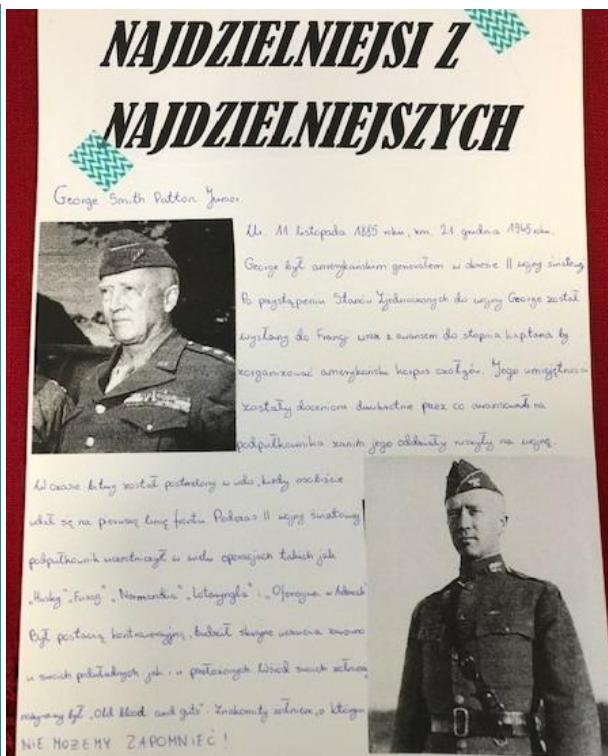 NAJDZIELNIEJSI Z
NAJDZIELNIEJSZYCH
George Smith Patton Junior
Ur. 11 listopada 1885 roku, zm. 21 grudnia 1945 roku.
George był amerykańskim generałem w okresie II wojny światowej
Po przystąpieniu Stanów Zjednoczonych do wojny George został
wysłany do Francji wraz z awansem do stopnia kapitana by
zorganizować amerykański korpus czołgów. Jego umiejętności
zostały docenione dwukrotnie przez co awansował na
podpułkownika zanim jego oddziały ruszyły na wojnę.
W czasie bitwy został postrzelony w udo, kiedy osobiście
udał się na pierwszą linię frontu. Podczas II wojny światowej
podpułkownik uczestniczył w wielu operacjach takich jak
"Husky", "Normandia", i "Ofensywa w Ardenach"
Był postacią kontrowersyjną, budził skrajne uczucia zarówno
u swoich podwładnych jak i u przełożonych. Wśród swoich żołnierzy
nazywany był "Old blood and guts". Znakomity żołnierz, o którym
NIE MOŻEMY ZAPOMNIEĆ!